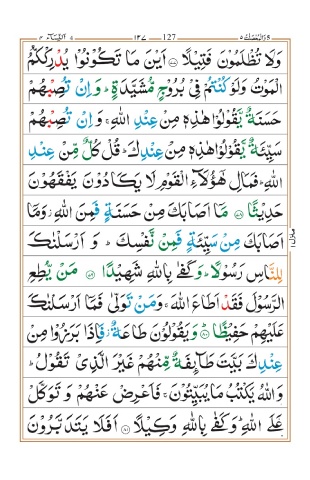 النسآء ٤ ١٢٧ 127 والمحصنت ٥
وَلَا تُظْلَمُوْنَ فَتِيْلًا ﴿۷۷﴾ اَيْنَ مَا تَكُوْنُوْا يُدْرِكْكُّمُ
الْمَوْتُ وَلَوْ كُنْتُمْ فِيْ بُرُوْجٍ مُّشَيَّدَةٍ ؕ وَ اِنْ تُصِبْهُمْ
حَسَنَةٌ يَّقُوْلُوْا هٰذِهٖ مِنْ عِنْدِ اللّٰهِ ۚ وَ اِنْ تُصِبْهُمْ
سَيِّئَةٌ يَّقُوْلُوْا هٰذِهٖ مِنْ عِنْدِكَ ؕ قُلْ كُلٌّ مِّنْ عِنْدِ
اللّٰهِ ؕ فَمَالِ هٰۤؤُلَآءِ الْقَوْمِ لَا يَكَادُوْنَ يَفْقَهُوْنَ
حَدِيْثًا ﴿۷۸﴾ مَاۤ اَصَابَكَ مِنْ حَسَنَةٍ فَمِنَ اللّٰهِ ؗ وَمَاۤ
اَصَابَكَ مِنْ سَيِّئَةٍ فَمِنْ نَّفْسِكَ ؕ وَ اَرْسَلْنٰكَ
لِلنَّاسِ رَسُوْلًا ؕ وَكَفٰى بِاللّٰهِ شَهِيْدًا ﴿۷۹﴾ مَنْ يُّطِعِ
الرَّسُوْلَ فَقَدْ اَطَاعَ اللّٰهَ ۚ وَمَنْ تَوَلّٰى فَمَاۤ اَرْسَلْنٰكَ
عَلَيْهِمْ حَفِيْظًا ﴿۸۰﴾ وَيَقُوْلُوْنَ طَاعَةٌ ؗ فَاِذَا بَرَزُوْا مِنْ
عِنْدِكَ بَيَّتَ طَآئِفَةٌ مِّنْهُمْ غَيْرَ الَّذِيْ تَقُوْلُ ؕ
وَاللّٰهُ يَكْتُبُ مَا يُبَيِّتُوْنَ ۚ فَاَعْرِضْ عَنْهُمْ وَ تَوَكَّلْ
عَلَى اللّٰهِ ؕ وَكَفٰى بِاللّٰهِ وَكِيْلًا ﴿۸۱﴾ اَفَلَا يَتَدَبَّرُوْنَ
منزل ١